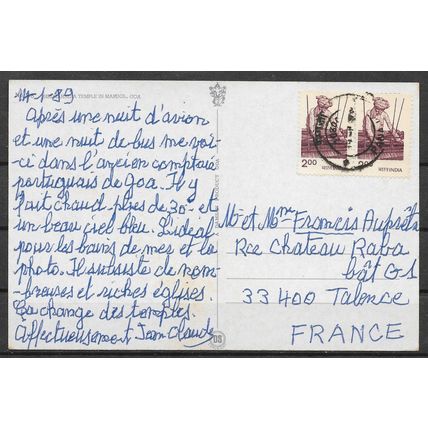 14-1-89
TEMPLE IN MARDOL. GOA
Après une nuit d'avion
et une nuit de bus me voi-
ci dans l'ancien comptoir
portuguais de Goa. Il y
fait chaud près de 30° et
un beau ciel bleu. L'idéal
pour les bains de mer et la
photo. Il subsiste de nom-
breuses et riches églises.
Ça change des temples.
Affectueusement Jean-Claude
2.00
INDIA
2.00
INDIA
M et Mme Francis
Rce Chateau Raba
bât G1
33400 Talence
FRANCE